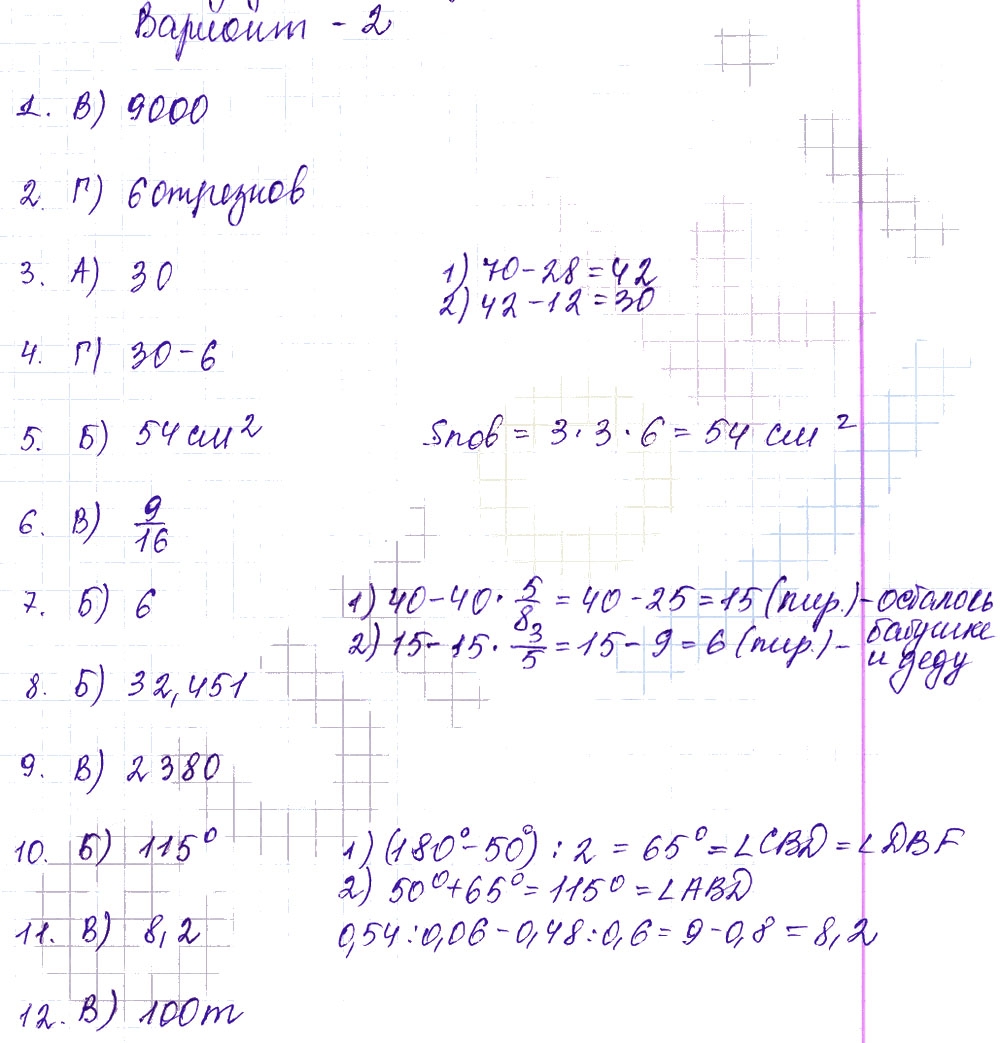 Вариант - 2
1. В) 9000
2. Г) 6 отрезков
3. А) 30 1) 70 - 28 = 42
2) 42 - 12 = 30
4. Г) 30 - 6
5. Б) 54 см² Sпов = 3 · 3 · 6 = 54 см²
6. В) 9/16
7. Б) 6 1) 40 - 40 · 5/8 = 40 - 25 = 15 (пир.) - осталось
2) 15 - 15 · 3/5 = 15 - 9 = 6 (пир.) - бабушке
и деду
8. Б) 32,451
9. В) 2380
10. Б) 115° 1) (180° - 50°) : 2 = 65° = ∠CBD = ∠DBF
2) 50° + 65° = 115° = ∠ABD
11. В) 8,2 0,54 : 0,06 - 0,48 : 0,6 = 9 - 0,8 = 8,2
12. В) 100 т